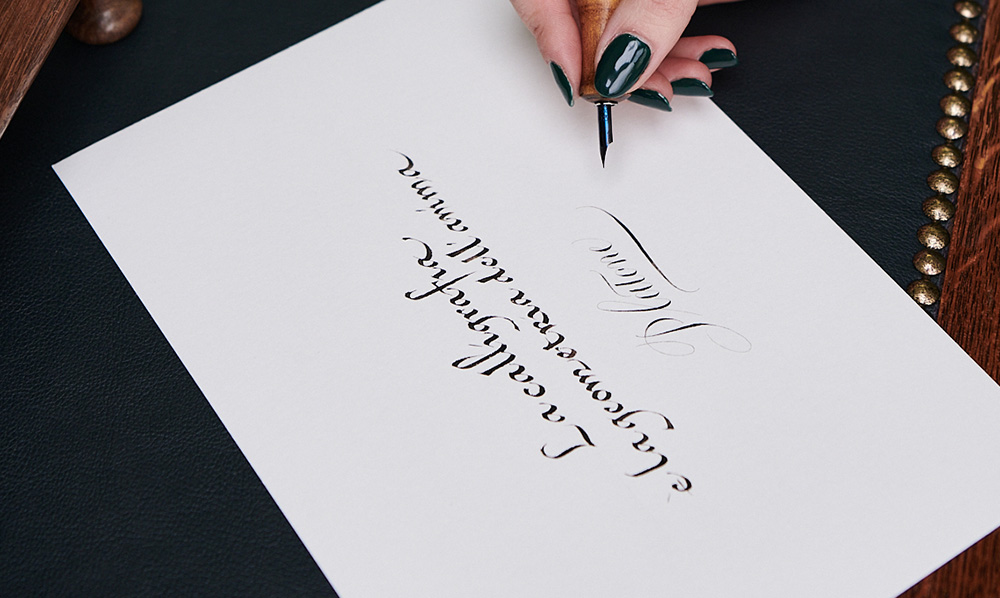 La calligrafia
è la geometria dell'anima
Platone